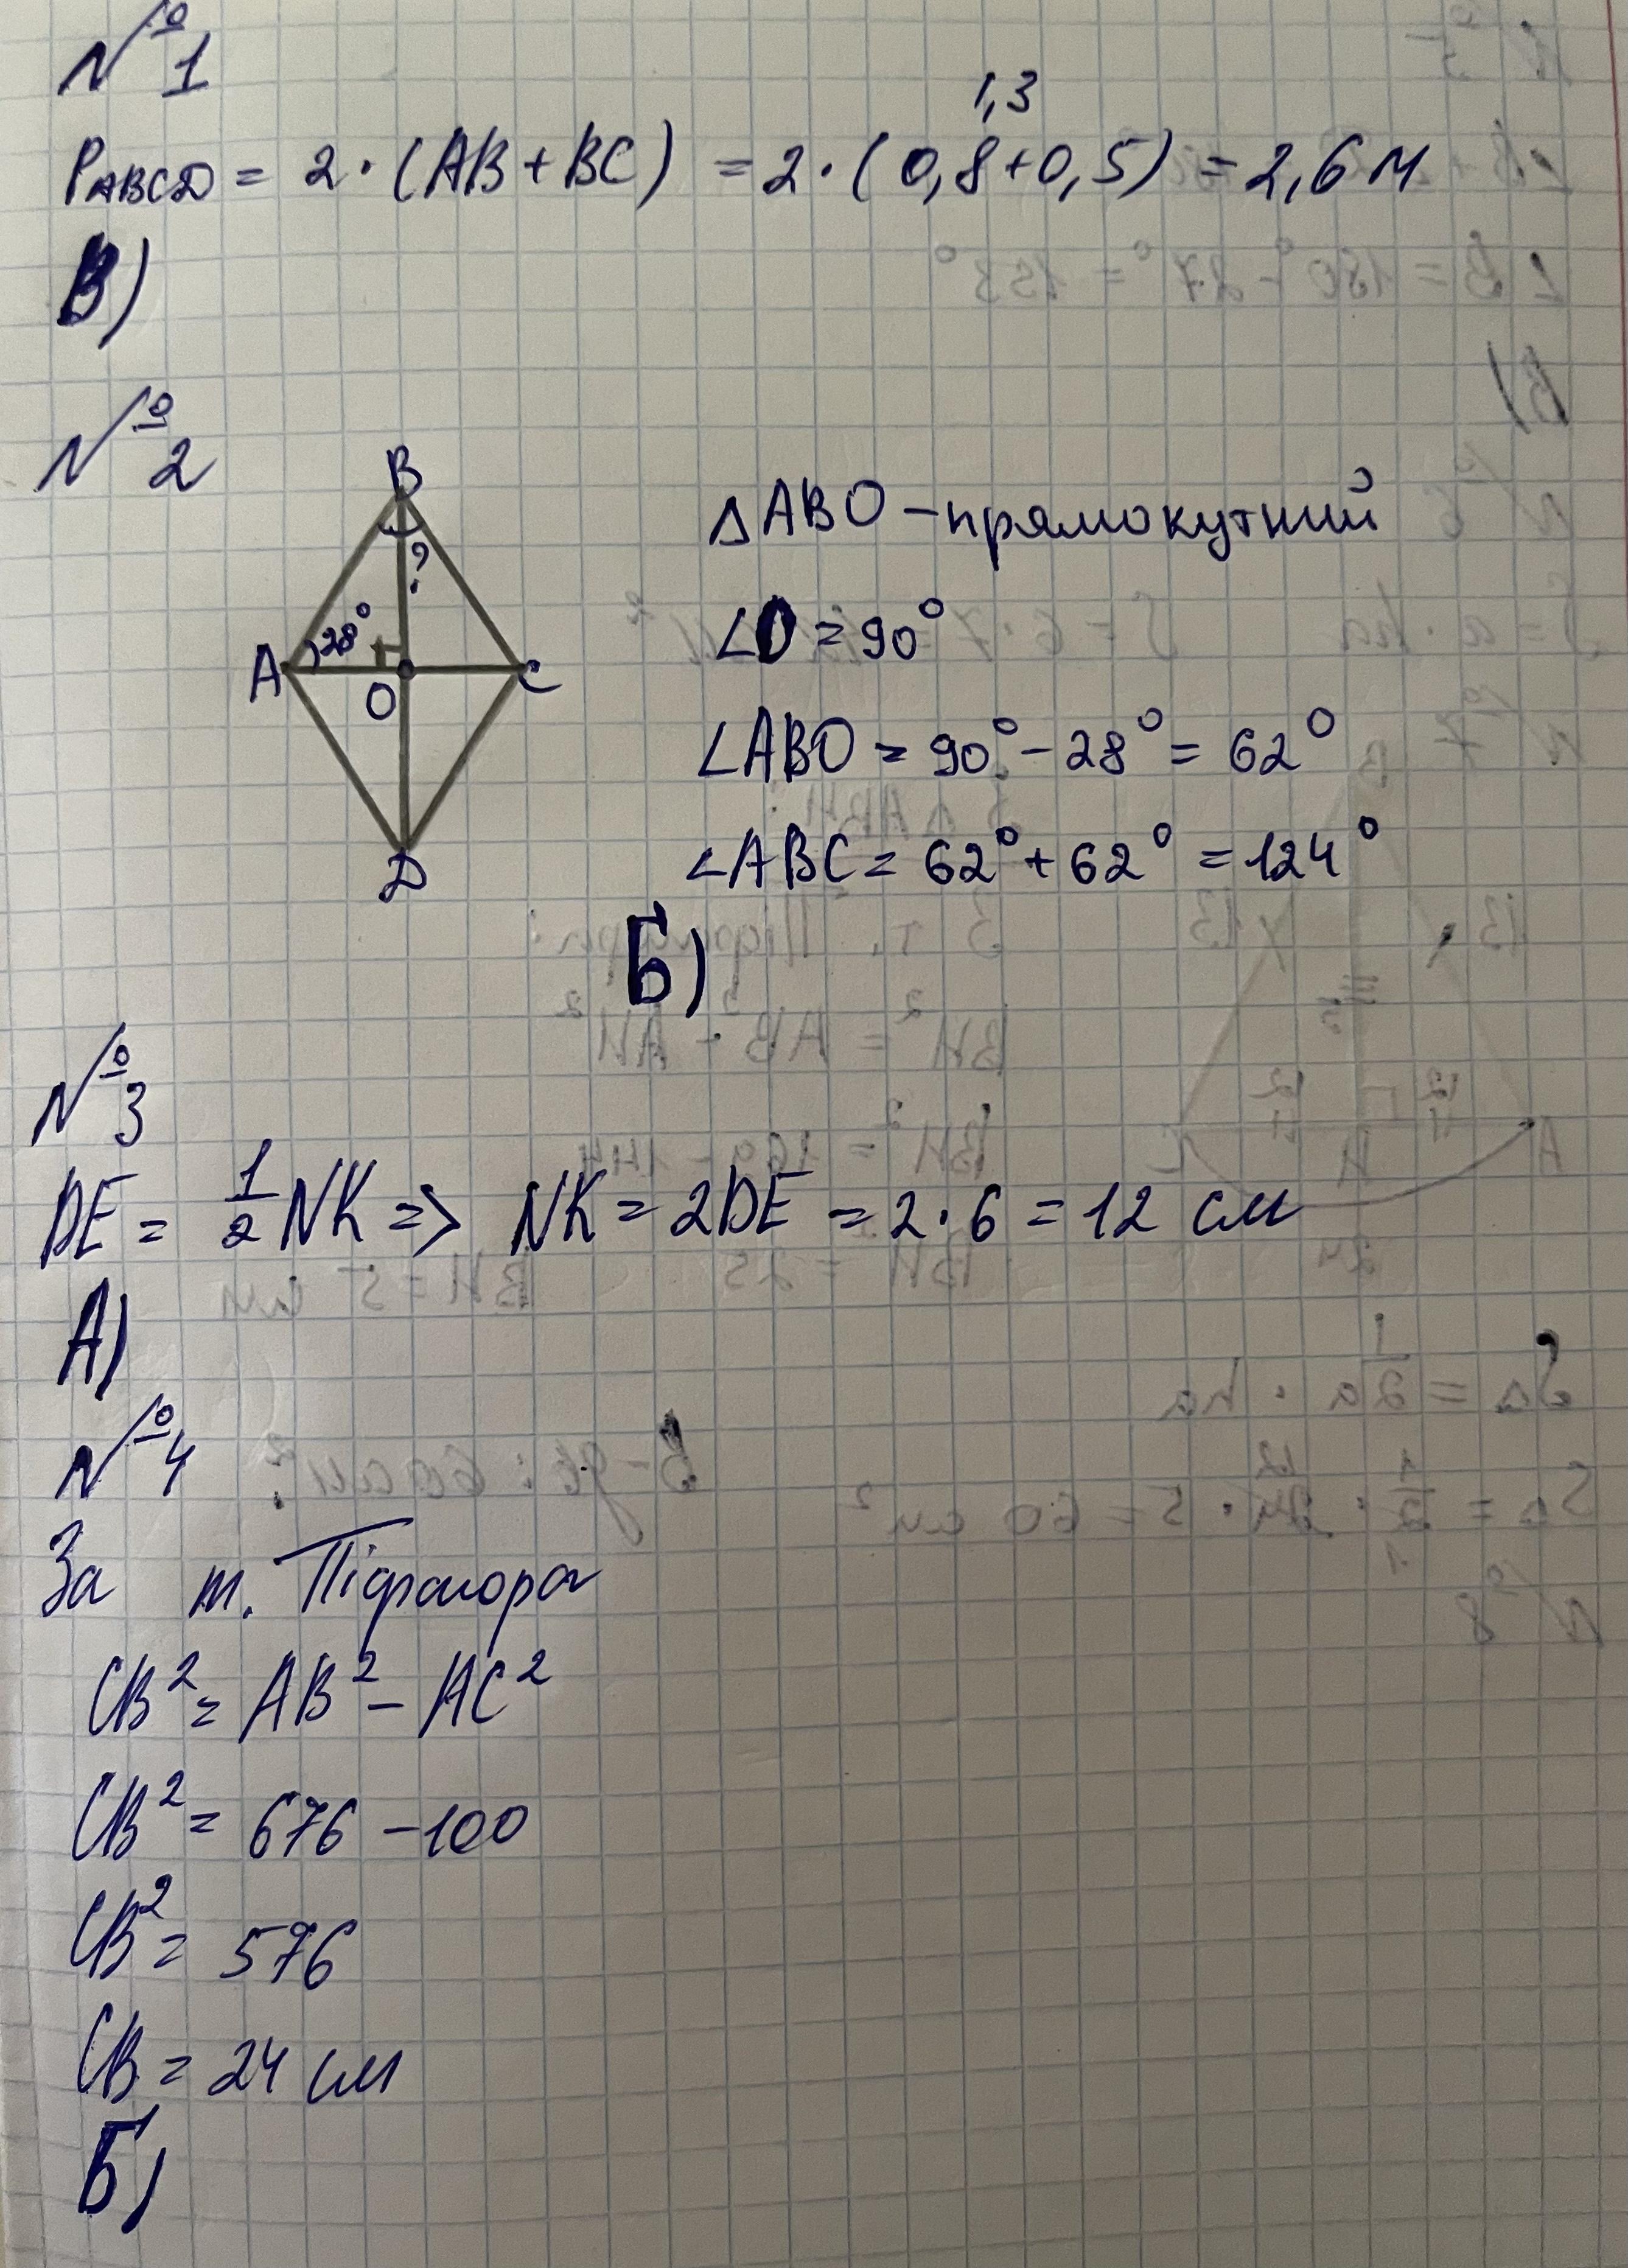 №1
1,3
PABCD = 2·(AB+BC) = 2·(0,8+0,5) = 2,6 м
В)
№2
B
?
28°
A
O
C
D
△ABO – прямокутний
∠O = 90°
∠ABO = 90° – 28° = 62°
∠ABC = 62° + 62° = 124°
Б)
№3
DE = 1/2 NK => NK = 2DE = 2·6 = 12 см
А)
№4
За т. Піфагора
CB² = AB² – AC²
CB² = 676 – 100
CB² = 576
CB = 24 см
Б)